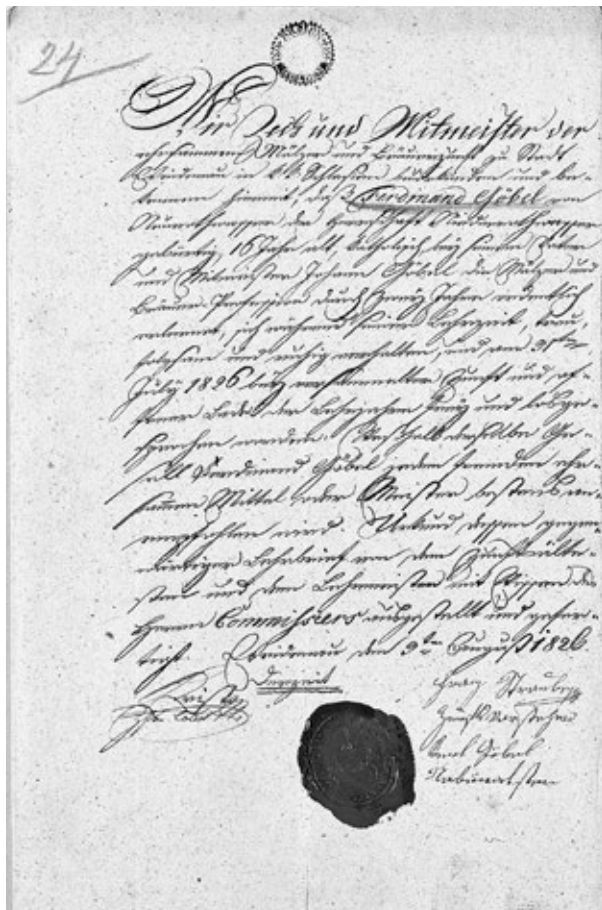 24
Wir Zech und Mitmeister der
ehrsammen Mälzer und Bräuerzunft zu Stadt
Weidenau in k.k. Schlesien und be-
kennen hiermit, daß Ferdinand Göbel von
der Herrschaft
gebürtig, 16 Jahr alt, katholisch bey seinem Vater
und Mitmeister Johann Göbel die Mälzer und
Bräuer Profession durch Jahre ordentlich
erlernet, sich während seiner Lehrzeit, treu,
folgsam und ruhig verhalten, und am 31ten
July 1826 bey versammelter Zunft und of-
fener Lade der Lehrjahre frey und losge-
sprochen worden. Weshalb derselbe Ge-
sell Ferdinand Göbel jedem fremden ehr-
samen Mittel oder Meister bestens an-
empfohlen wird. Urkund dessen gegen-
wärtiger Lehrbrief von dem Zunftälte-
sten und dem Lehrmeister mit des
Herrn Commissärs ausgestellt und gefer-
tigt. Weidenau den 9ten August 1826.
Franz
Zunftvorsteher
Göbel